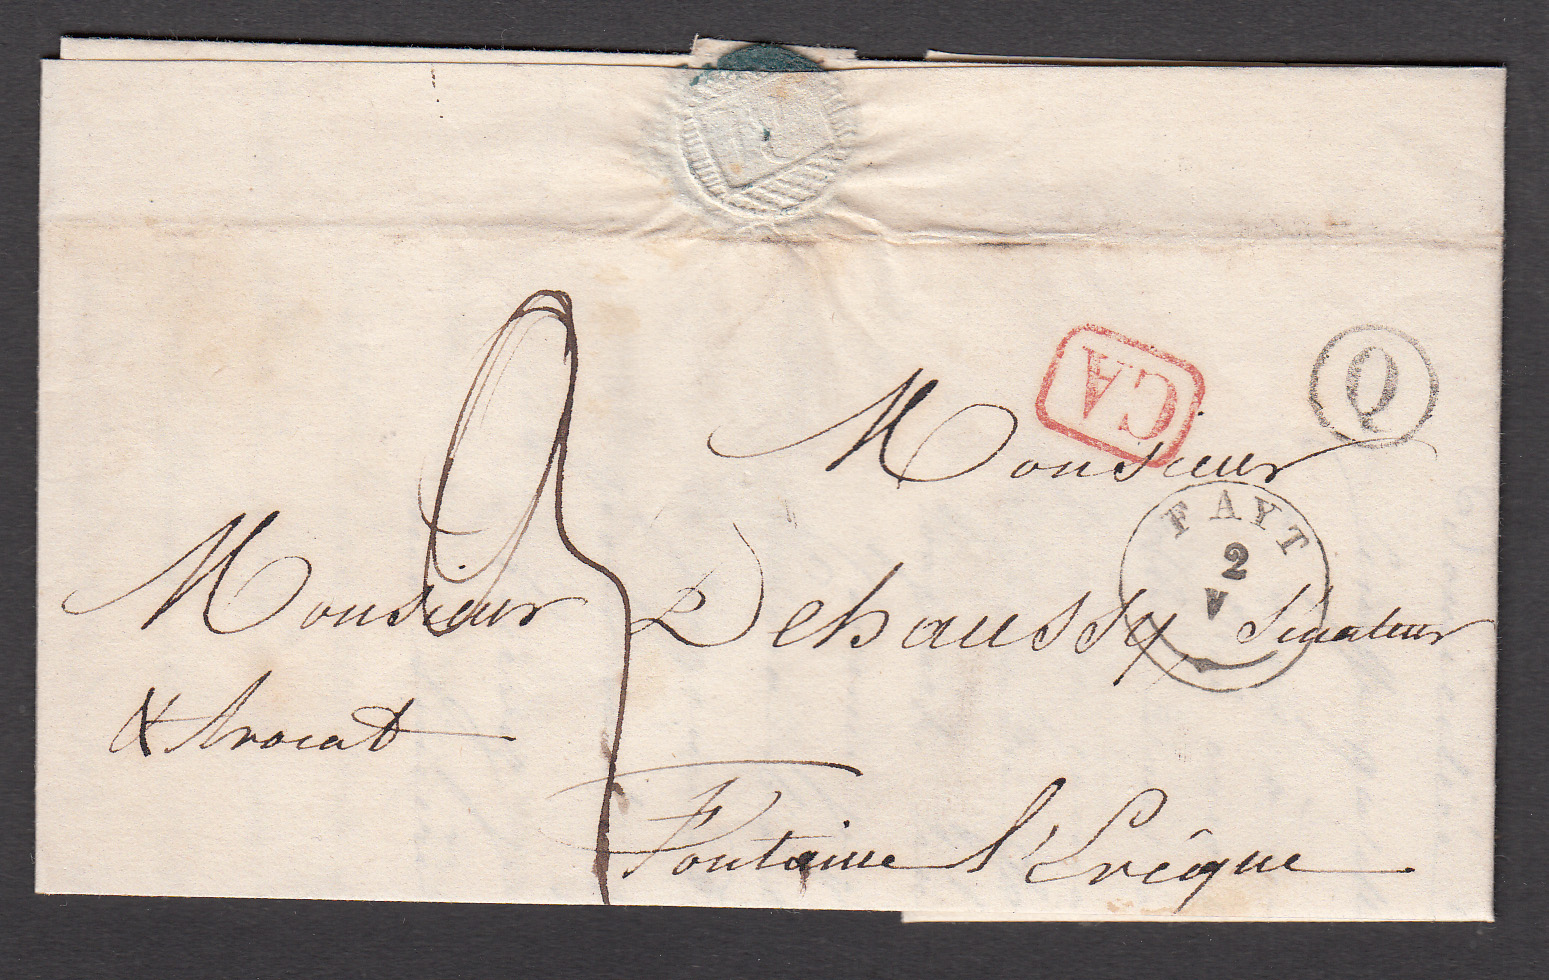 CA
Q
Monsieur
FAYT
2
V
Monsieur Dehaussy Sénateur
& Avocat
Fontaine l'Evêque